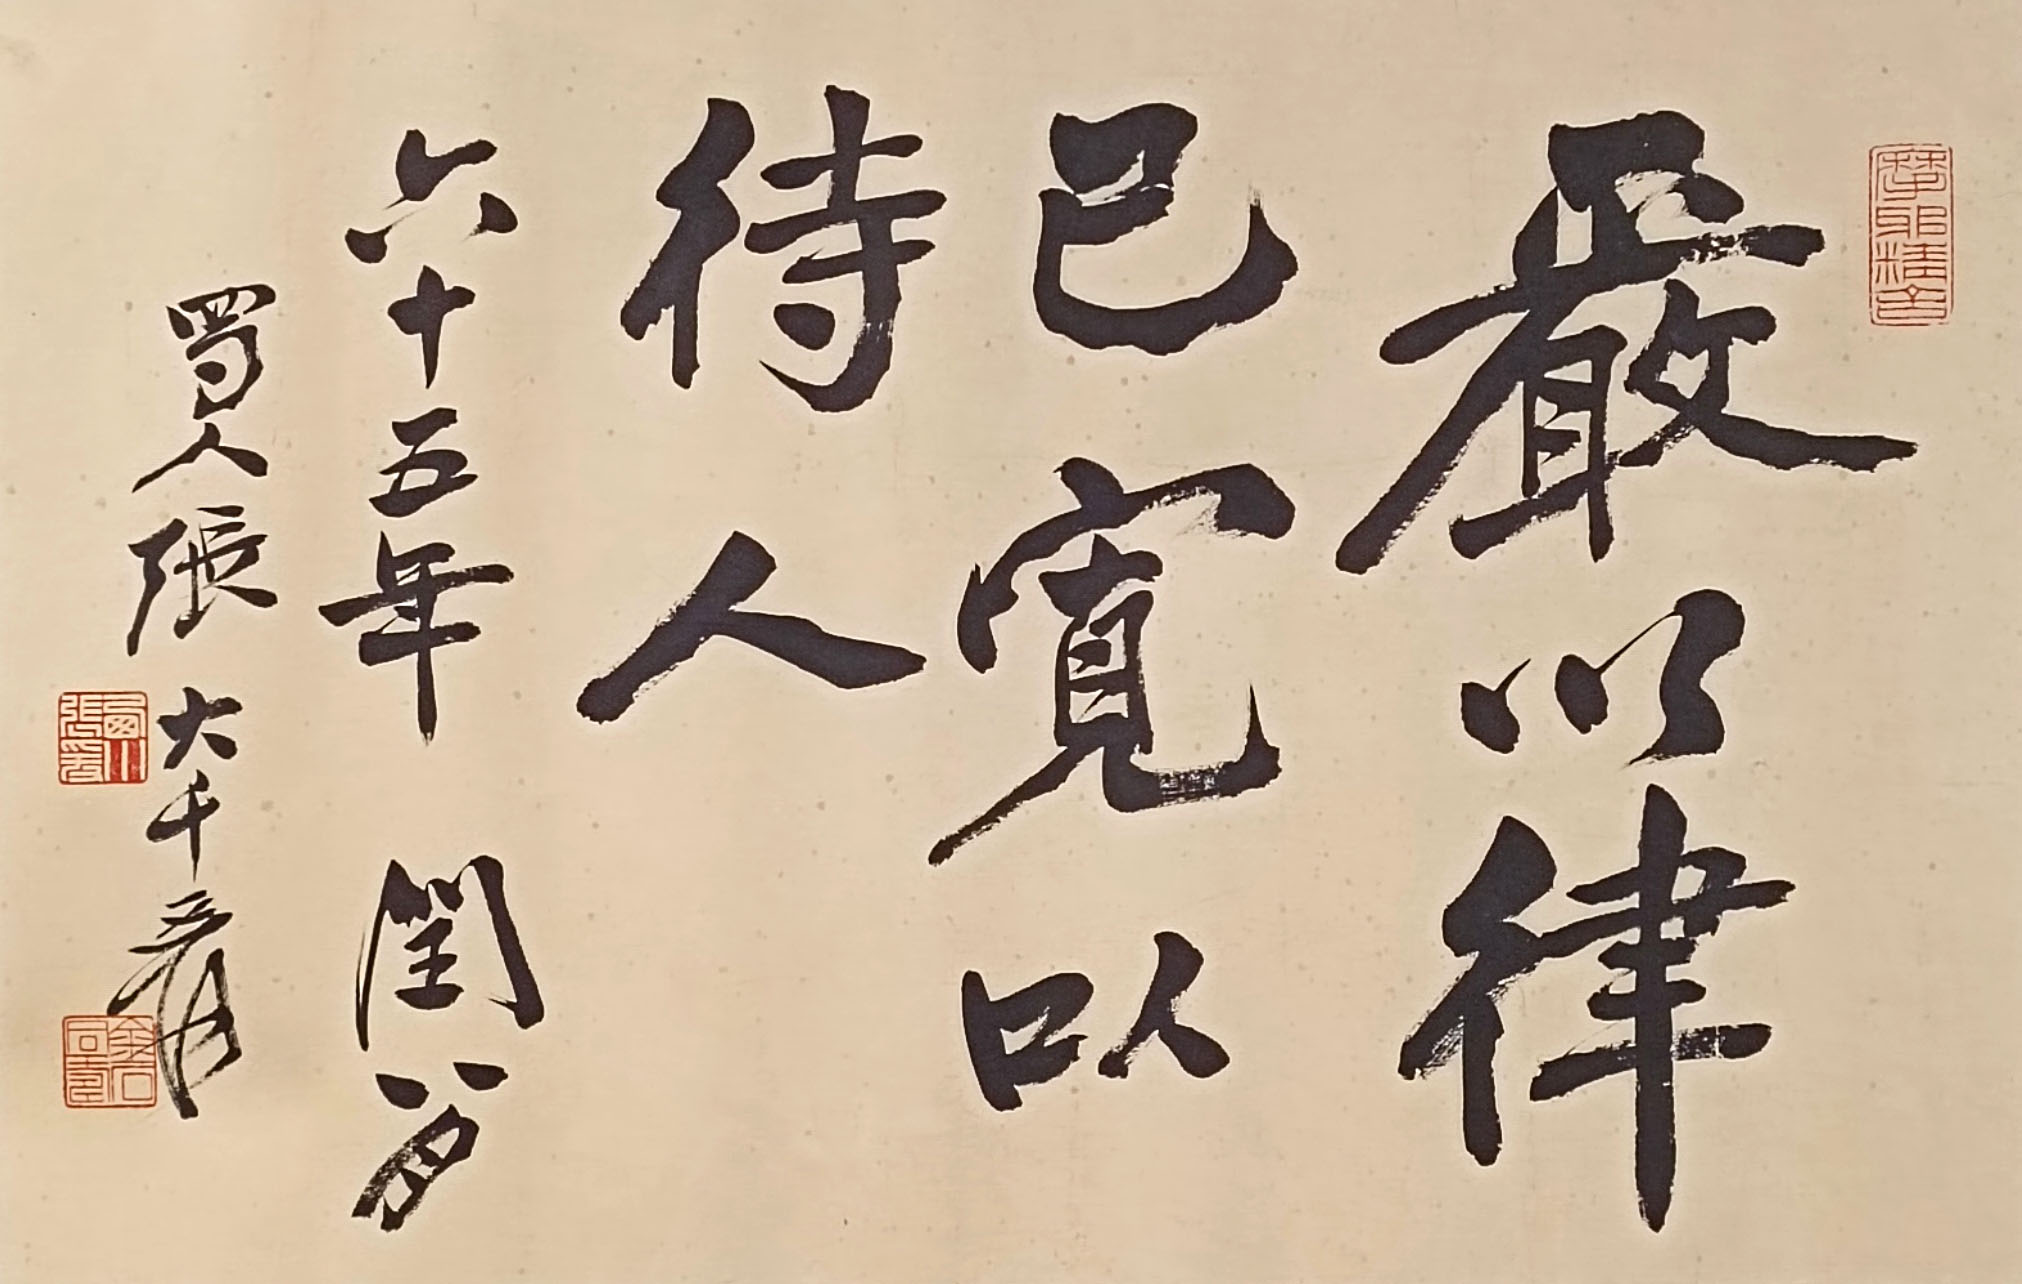 嚴以律
己寬以
待人
六十五年 閏八月
蜀人張大千爰